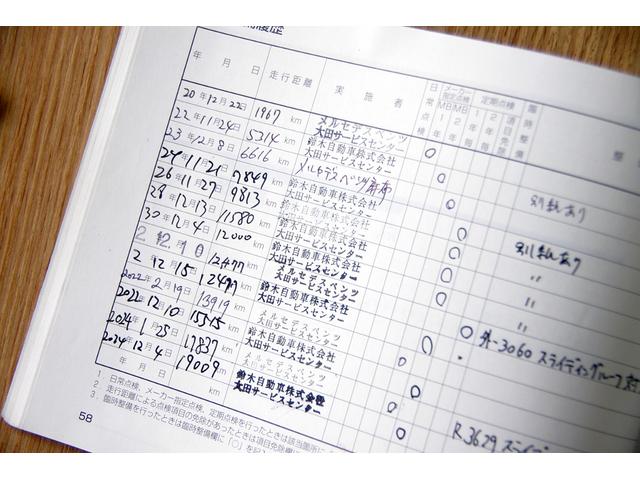 履歴
年 月 日 走行距離 実施者 日常点検 メーカー指定点検 MB 1年 MB 2年 定期点検 1年毎 2年毎 項目免除 臨時整備 整
20年12月22日 1967 km メルセデスベンツ 大田サービスセンター ○
22年11月24日 5314 km 鈴木自動車株式会社 大田サービスセンター ○
23年12月8日 6616 km メルセデスベンツ麻布 ○
24年11月21日 7849 km 鈴木自動車株式会社 大田サービスセンター ○ 別紙あり
26年11月27日 9813 km 鈴木自動車株式会社 大田サービスセンター ○
28年12月13日 11580 km 鈴木自動車株式会社 大田サービスセンター ○ 別紙あり
30年12月4日 12000 km 鈴木自動車株式会社 大田サービスセンター ○ 〃
12477 km メルセデスベンツ 大田サービスセンター ○
2年12月15日 12497 km 鈴木自動車株式会社 大田サービスセンター 〃
2022年2月19日 13919 km メルセデスベンツ 大田サービスセンター ○ ○ 外-3060 スライディングルーフ
2022年12月10日 15315 km 鈴木自動車株式会社 大田サービスセンター ○
2024年1月25日 17837 km メルセデスベンツ 大田サービスセンター ○
2024年12月4日 19009 km 鈴木自動車株式会社 大田サービスセンター ○ R3629
年 月 日 km
1 日常点検、メーカー指定点検、定期点検を行ったときは該当箇所に
2 走行距離による点検項目の免除があったときは項目免除欄に
3 臨時整備を行ったときは臨時整備欄に「○」を記
58